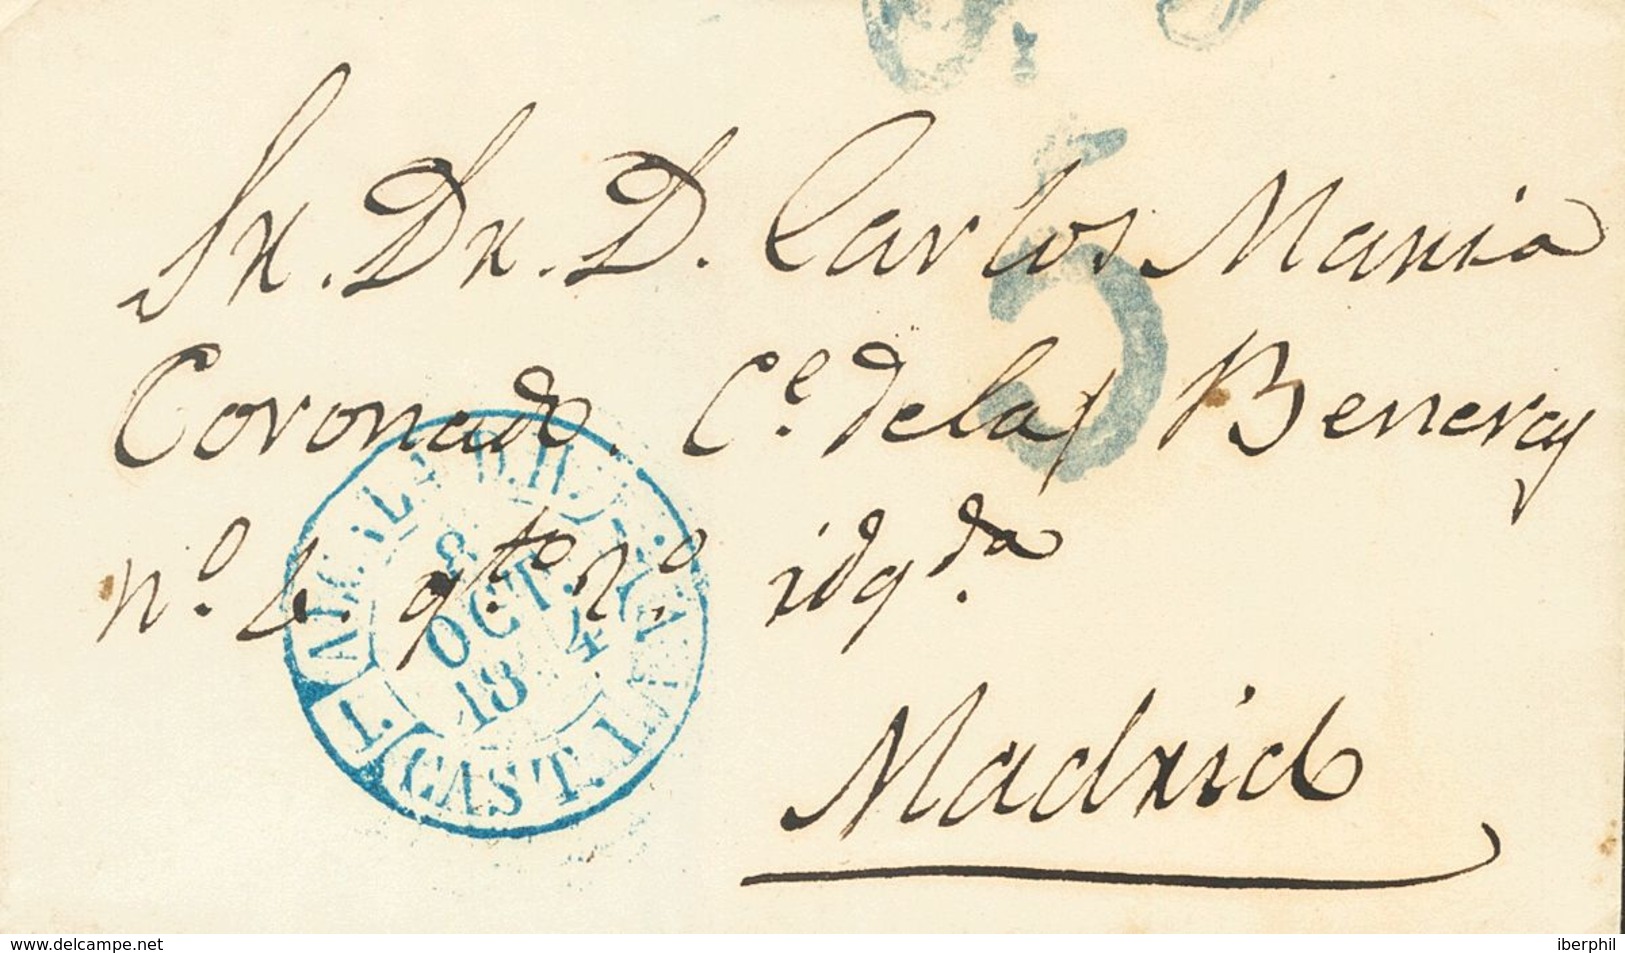 Sr. Dn. D. Carlos Maria
Coronado. C.e de las Beneras
nº 4. qto 2º izqda.
Madrid
5
ALCALA D.H.
8
OCT.
184
I.
CAST. LA N.
www.delcampe.net
iberphil